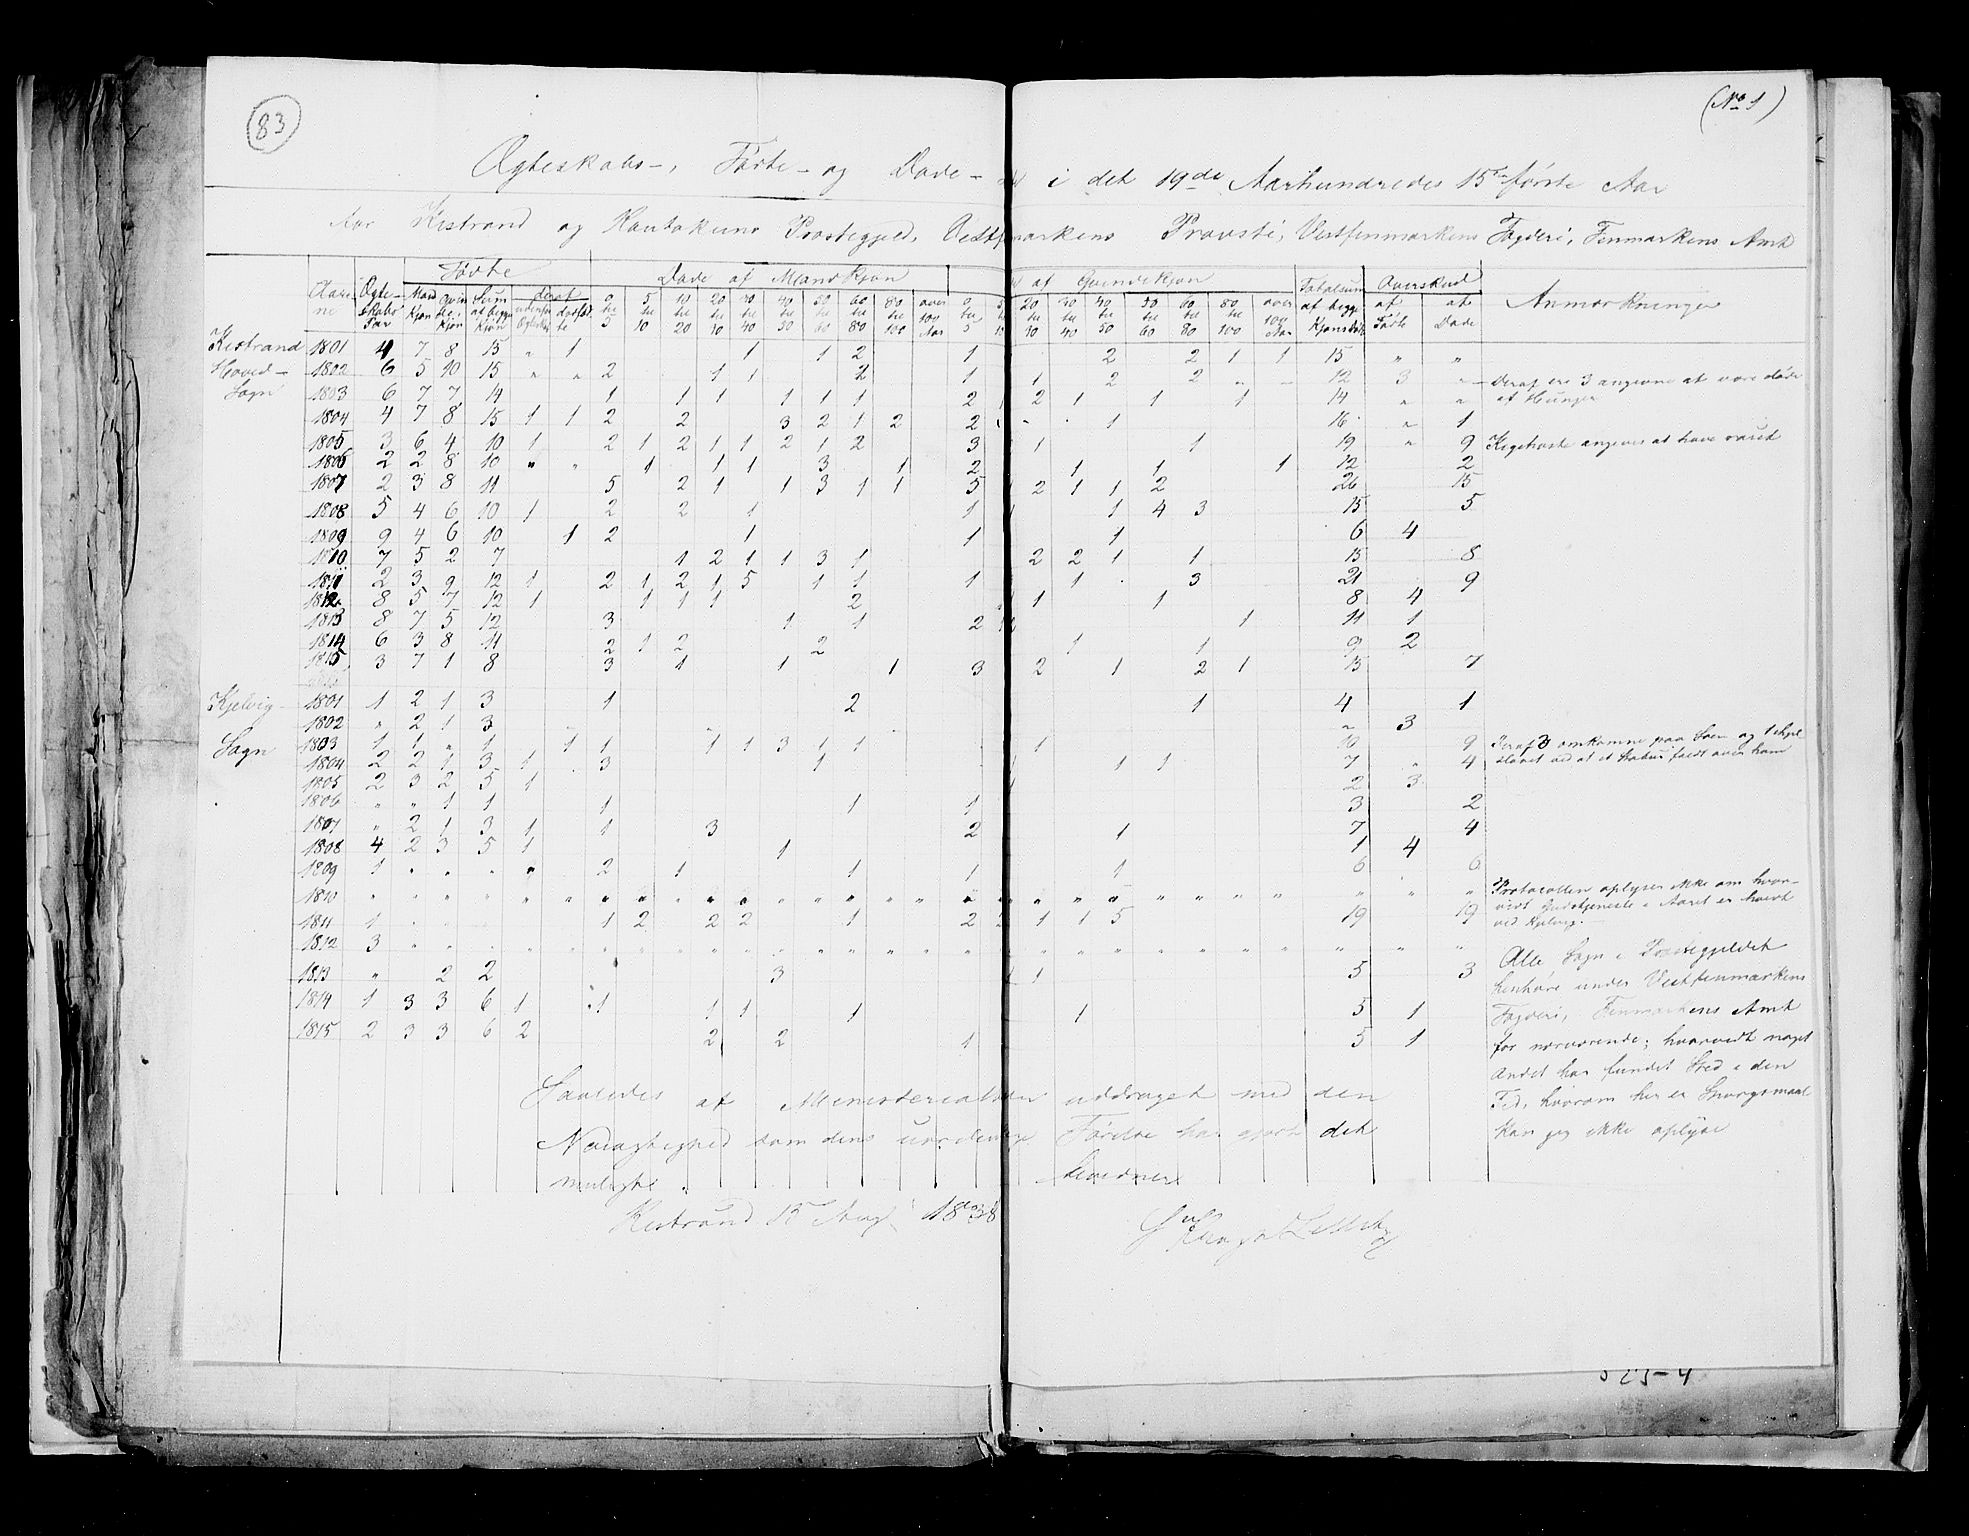 83
(No 1)
Ægteskabs-, Fødte- og Døde- i det 19de Aarhundredes 15 første Aar
for Kistrand og Kautokeino Præstegjeld, Vestfinmarkens Provsti, Vestfinmarkens Fogderi, Finmarkens Amt
Fødte Døde af Mandkjøn af Qvindekjøn Totalsum Overskud
Aarene Ægteskabs Par Mand Kjøn Qvindekjøn Sum af begge Kjøn deraf udenfor Ægteskab dødfødte 0 til 5 5 til 10 10 til 20 20 til 30 30 til 40 40 til 50 50 til 60 60 til 80 80 til 100 over 100 Aar 0 til 5 20 til 30 30 til 40 40 til 50 50 til 60 60 til 80 80 til 100 over 100 Aar af begge Kjøns Døde af Fødte at Døde Anmærkninger
Kistrand 1801 4 7 8 15 " 1 1 1 2 1 2 2 1 1 15 " "
Hoved- 1802 6 5 10 15 " " 2 1 1 2 1 1 2 2 " - 12 3 " Deraf ere 3 angivne at være døde
Sogn 1803 6 7 7 14 1 1 1 1 1 1 2 2 1 1 1 14 " " af Hunger
1804 4 7 8 15 1 1 2 2 3 2 1 2 2 1 16 " 1
1805 3 6 4 10 1 2 1 2 1 1 2 1 2 3 1 1 19 " 9 Kighoste angives at have været
1806 2 2 8 10 " " 1 1 1 3 1 2 1 1 1 12 2
1807 2 3 8 11 5 2 1 1 3 1 1 5 2 1 1 2 26 15
1808 5 4 6 10 1 2 2 1 1 1 4 3 15 5
1809 9 4 6 10 1 2 1 1 1 6 4
1810 7 5 2 7 1 2 1 1 3 1 2 2 1 1 15 8
1811 2 3 9 12 1 2 1 2 1 5 1 1 1 1 3 21 9
1812 8 5 7 12 1 1 1 1 2 1 1 8 4
1813 8 7 5 12 3 1 1 2 1 11 1
1814 6 3 8 11 2 1 2 2 1 1 9 2
1815 3 7 1 8 3 1 1 1 3 2 1 2 1 15 7
Kjelvig 1801 1 2 1 3 1 2 1 4 1
1802 " 2 1 3 " 3
Sogn 1803 1 1 " 1 1 1 1 1 3 1 1 1 10 9 Deraf 8 omkomne paa Søen og 1 ihjel
1804 2 2 1 3 1 3 1 1 1 7 " 4 slaaet ved at et Stabur faldt over ham
1805 2 3 2 5 1 2 3
1806 " " 1 1 1 1 1 3 2
1807 " 2 1 3 1 1 3 2 1 7 4
1808 4 2 3 5 1 1 1 4
1809 1 " " " " 2 1 1 1 1 6 6
1810 " " " " " " " " " " " " " " " " " " " " " " " " " " " Protocollen oplyser ikke om hvor-
1811 1 1 2 2 2 1 2 1 1 5 19 19 vidt Gudstjeneste i Aaret er holdt
ved Kjelvig.
1812 3 " " " " " " " " " " " " " " " " " " " " " " " " " "
1813 " 2 2 3 1 5 3
1814 1 3 3 6 1 1 1 1 1 1 5 1
1815 2 3 3 6 2 2 2 1 5 1
Alle Sogn i Præstegjeldet
henhøre under Vestfinmarkens
Fogderi, Finmarkens Amt
for nærværende; hvorvidt noget
Andet har fundet Sted i den
Tid, hvorom her er Spørgsmaal
kan jeg ikke oplyse
Saaledes af Ministerialbogen uddraget med den
Nøiagtighed som dens uordentlige Førelse har gjort det
muligt bevidner
Kistrand 15 Aug 1838
525-4